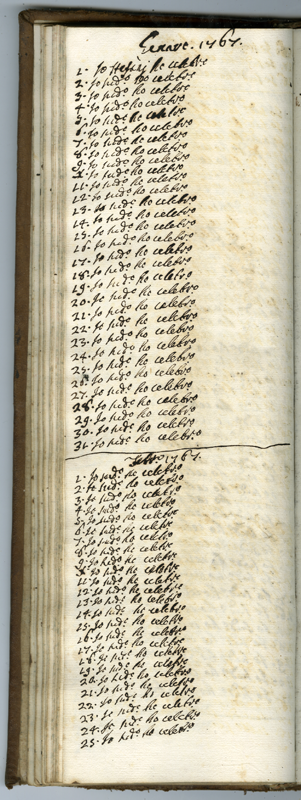 Gennro. 1767.
1. Io ho celebro
2. Io sudo ho celebro
3. Io sudo ho celebro
4. Io sudo ho celebro
5. Io sudo ho celebro
6. Io sudo ho celebro
7. Io sudo ho celebro
8. Io sudo ho celebro
9. Io sudo ho celebro
Io sudo ho celebro
11. Io sudo ho celebro
12. Io sudo ho celebro
13. Io sudo ho celebro
14. Io sudo ho celebro
15. Io sudo ho celebro
16. Io sudo ho celebro
17. Io sudo ho celebro
18. Io sudo ho celebro
19. Io sudo ho celebro
20. Io sudo ho celebro
21. Io sudo ho celebro
22. Io sudo ho celebro
23. Io sudo ho celebro
24. Io sudo ho celebro
25. Io sudo ho celebro
26. Io sudo ho celebro
27. Io sudo ho celebro
28. Io sudo ho celebro
29. Io sudo ho celebro
30. Io sudo ho celebro
31. Io sudo ho celebro
Febro 1767.
1. Io sudo ho celebro
2. Io sudo ho celebro
3. Io sudo ho celebro
4. Io sudo ho celebro
5. Io sudo ho celebro
6. Io sudo ho celebro
7. Io sudo ho celebro
8. Io sudo ho celebro
9. Io sudo ho celebro
Io sudo ho celebro
11. Io sudo ho celebro
12. Io sudo ho celebro
13. Io sudo ho celebro
14. Io sudo ho celebro
15. Io sudo ho celebro
16. Io sudo ho celebro
17. Io sudo ho celebro
18. Io sudo ho celebro
19. Io sudo ho celebro
20. Io sudo ho celebro
21. Io sudo ho celebro
22. Io sudo ho celebro
23. Io sudo ho celebro
24. Io sudo ho celebro
25. Io sudo ho celebro